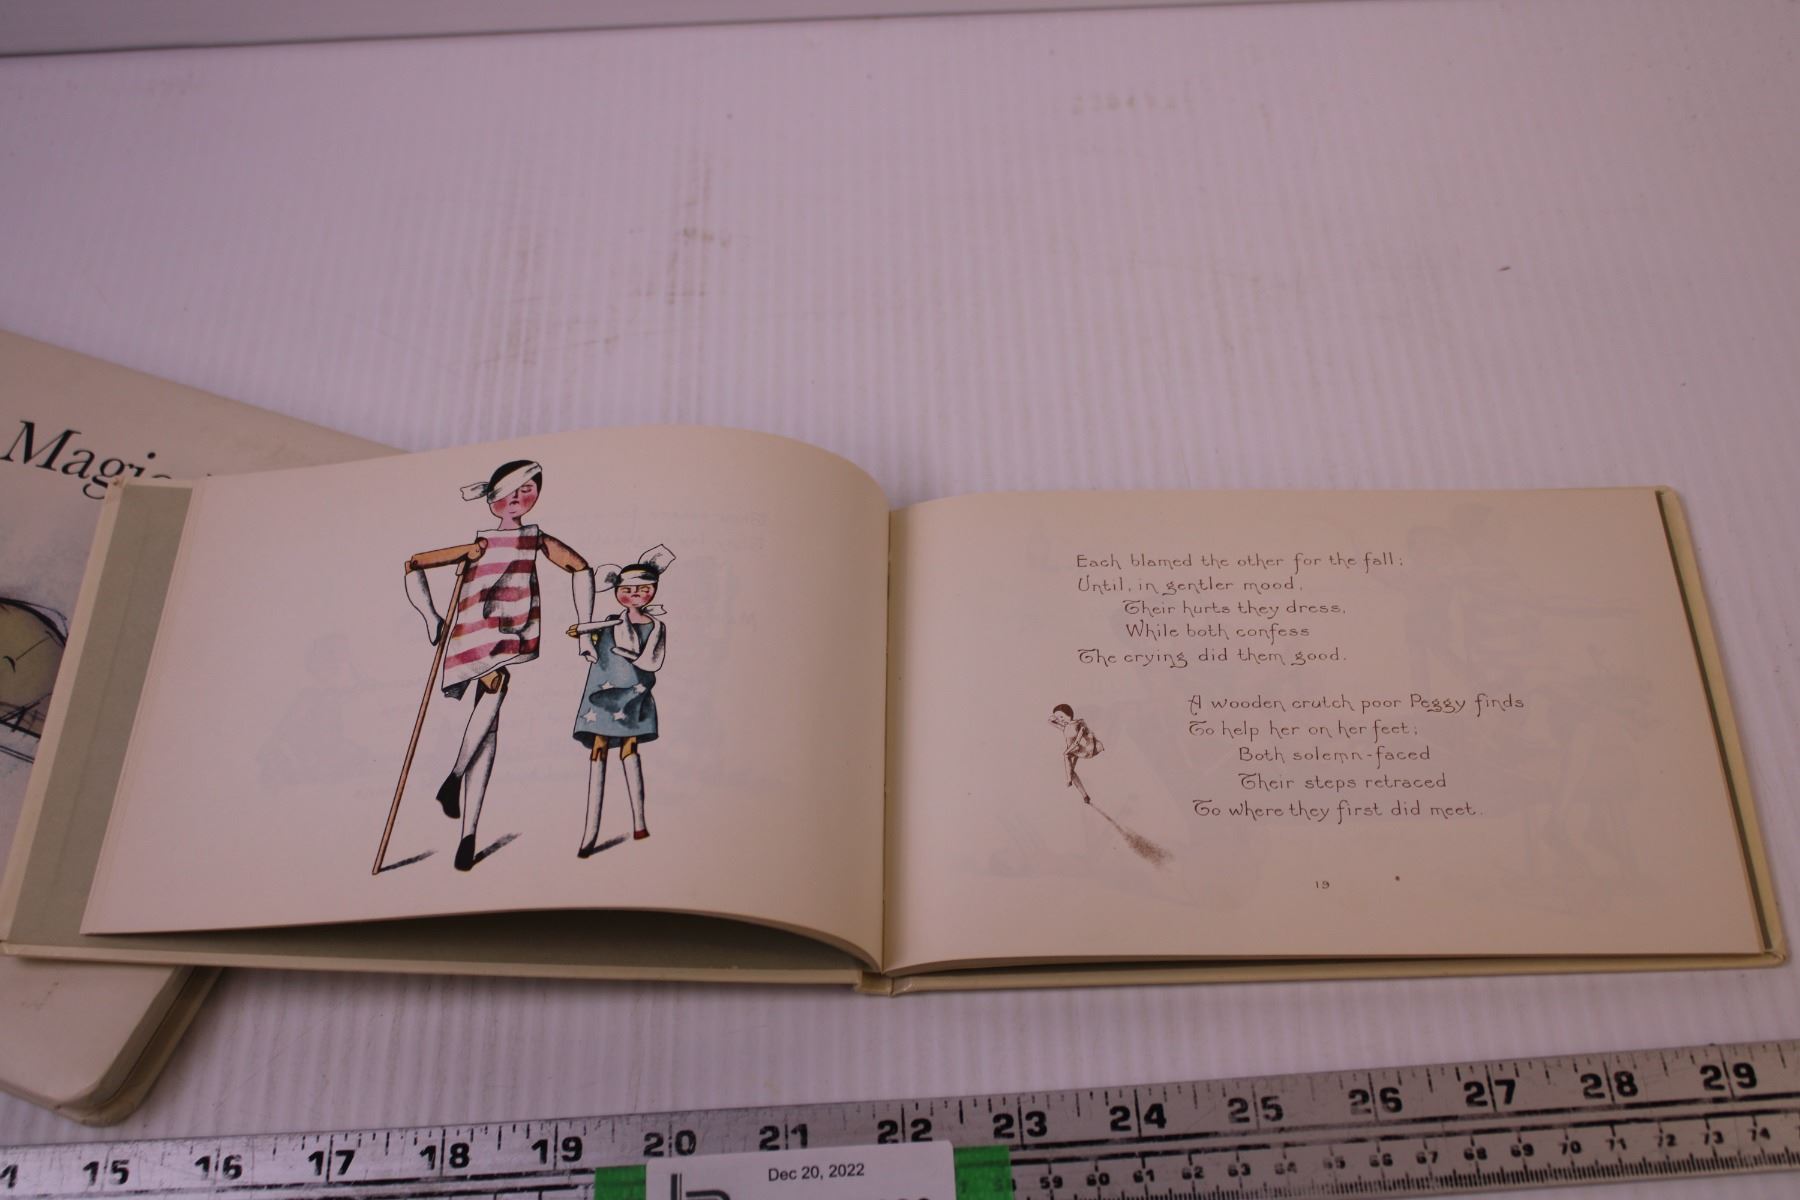 Magic
Each blamed the other for the fall;
Until, in gentler mood,
Their hurts they dress,
While both confess
The crying did them good.
A wooden crutch poor Peggy finds
To help her on her feet;
Both solemn-faced
Their steps retraced
To where they first did meet.
19
15 16 17 18 19 20 21 22 23 24 25 26 27 28 29
59 60 61 62 63 64 65 66 67 68 69 70 71 72 73 74
Dec 20, 2022